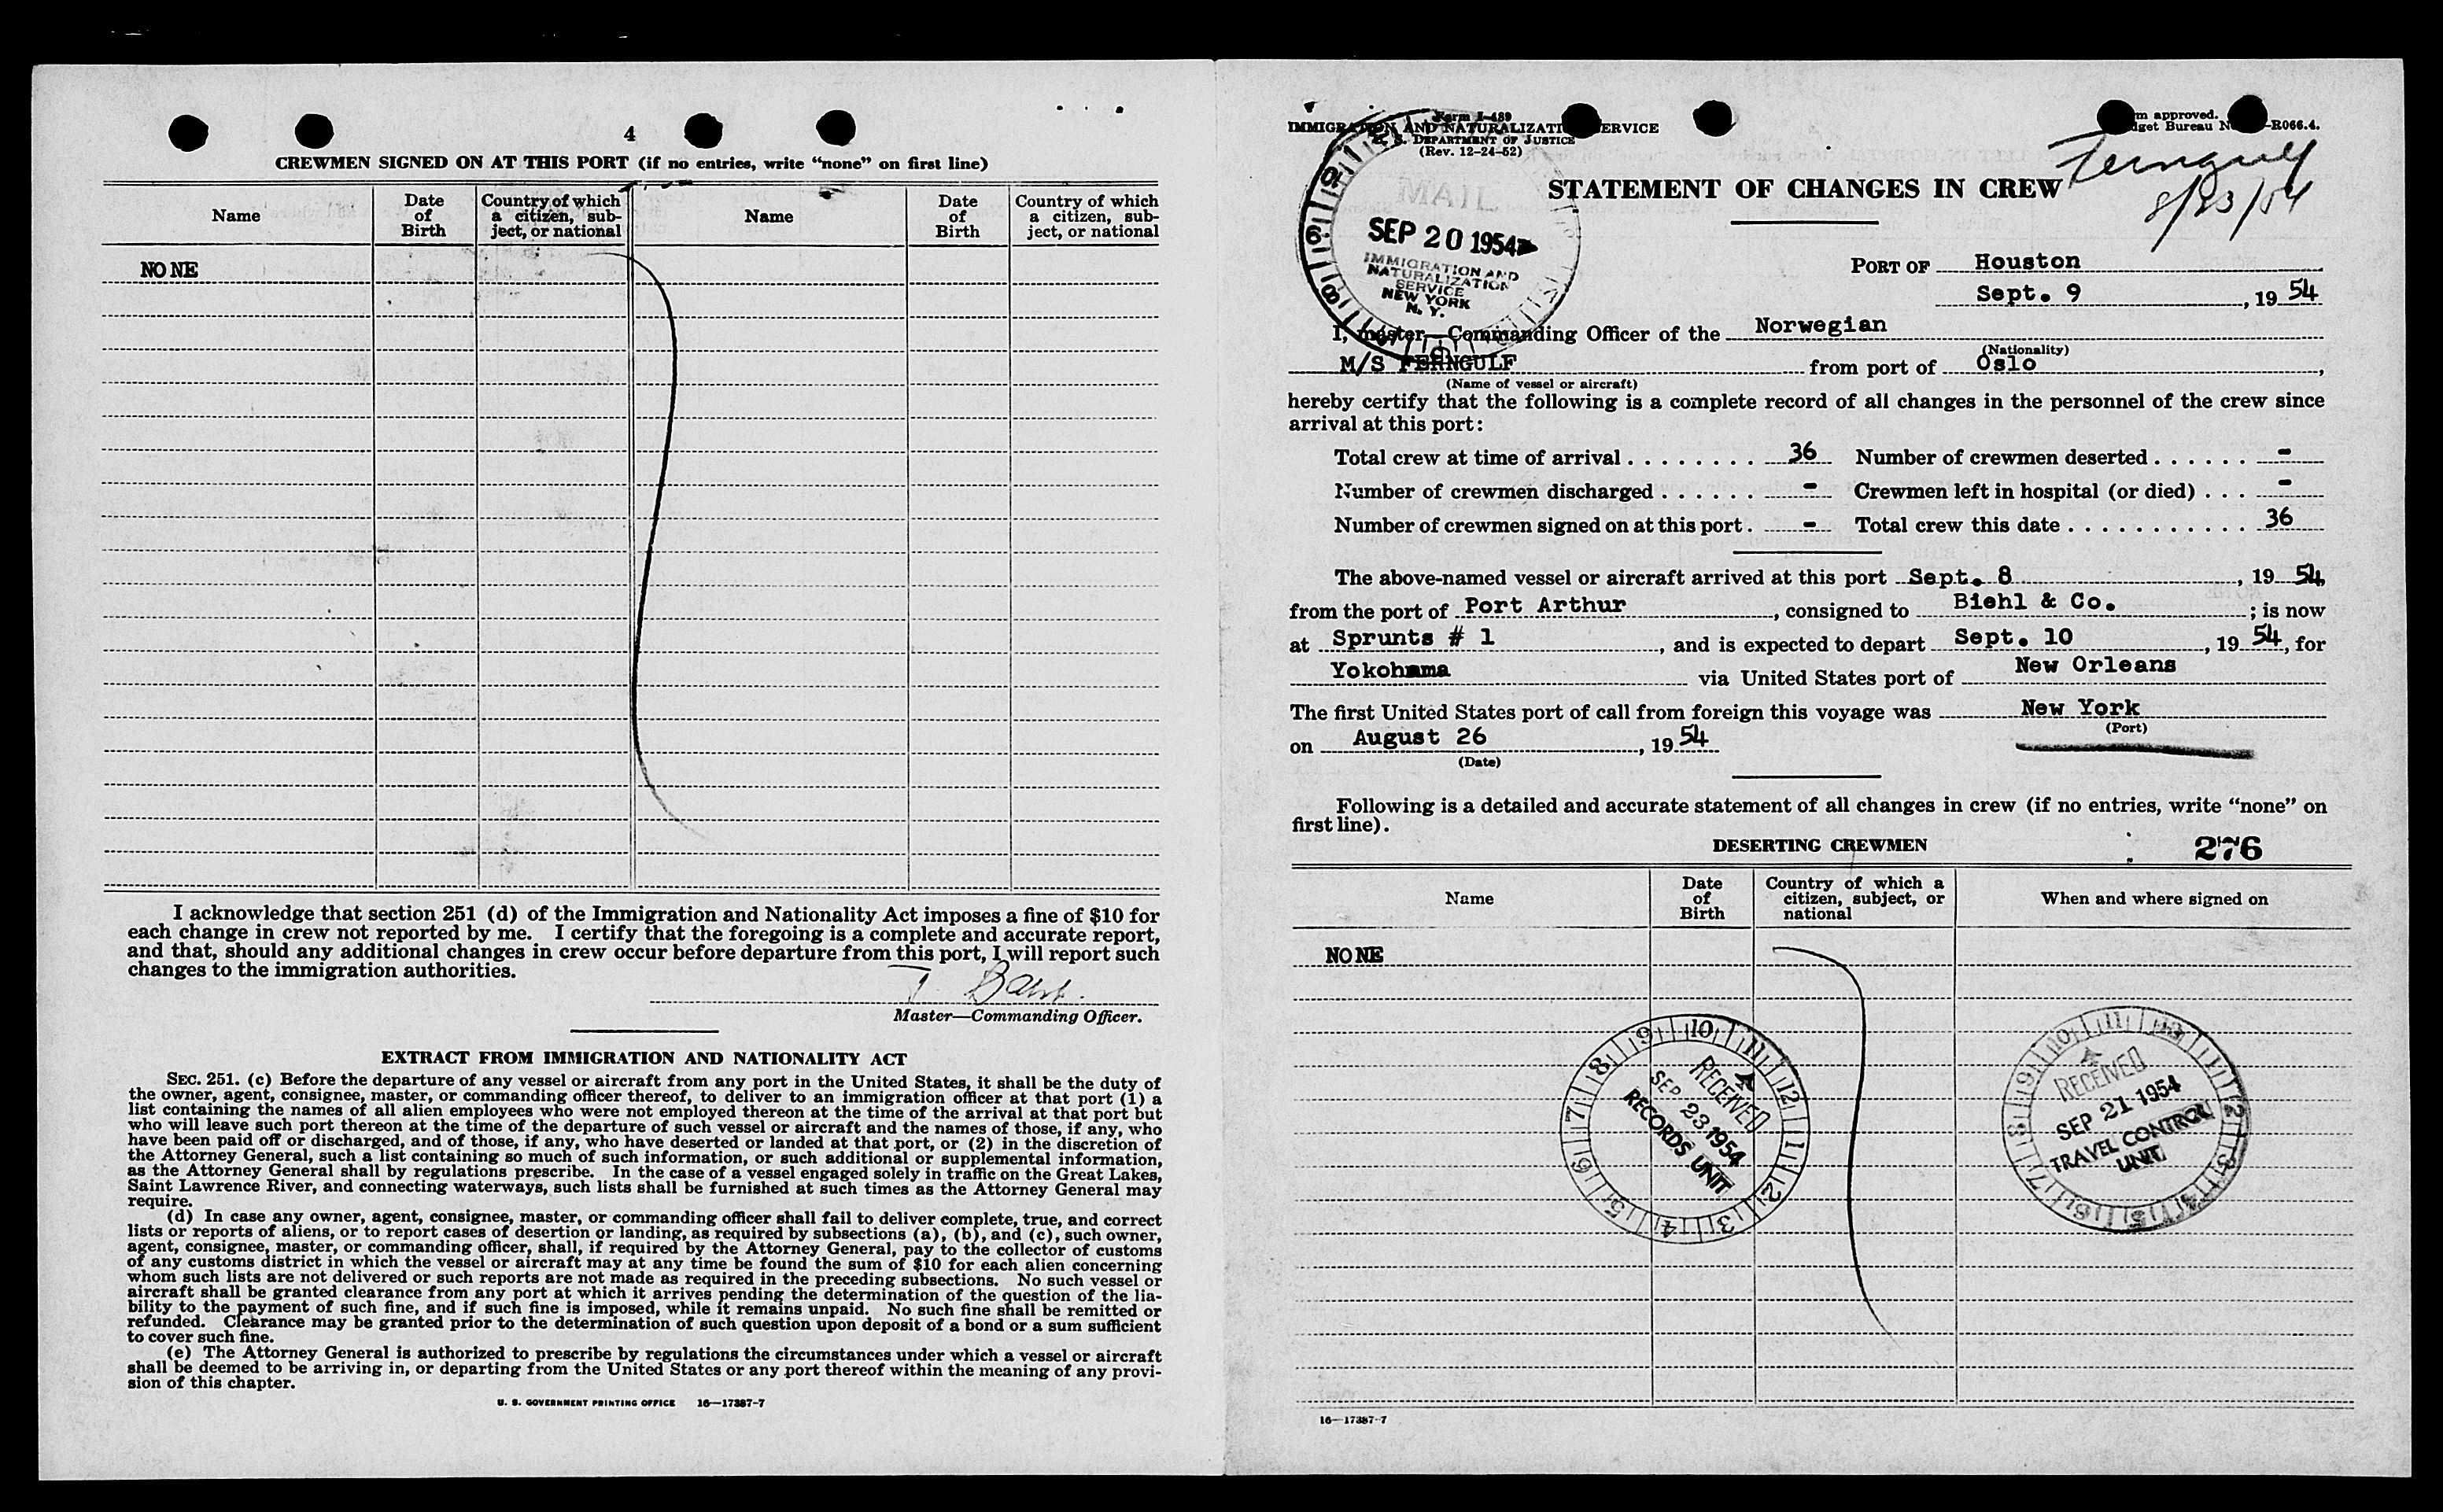 4
CREWMEN SIGNED ON AT THIS PORT (if no entries, write “none” on first line)
Name
Date of Birth
Country of which a citizen, subject, or national
Name
Date of Birth
Country of which a citizen, subject, or national
NONE
I acknowledge that section 251 (d) of the Immigration and Nationality Act imposes a fine of $10 for
each change in crew not reported by me. I certify that the foregoing is a complete and accurate report,
and that, should any additional changes in crew occur before departure from this port, I will report such
changes to the immigration authorities.
Master—Commanding Officer.
EXTRACT FROM IMMIGRATION AND NATIONALITY ACT
SEC. 251. (c) Before the departure of any vessel or aircraft from any port in the United States, it shall be the duty of
the owner, agent, consignee, master, or commanding officer thereof, to deliver to an immigration officer at that port (1) a
list containing the names of all alien employees who were not employed thereon at the time of the arrival at that port but
who will leave such port thereon at the time of the departure of such vessel or aircraft and the names of those, if any, who
have been paid off or discharged, and of those, if any, who have deserted or landed at that port, or (2) in the discretion of
the Attorney General, such a list containing so much of such information, or such additional or supplemental information,
as the Attorney General shall by regulations prescribe. In the case of a vessel engaged solely in traffic on the Great Lakes,
Saint Lawrence River, and connecting waterways, such lists shall be furnished at such times as the Attorney General may
require.
(d) In case any owner, agent, consignee, master, or commanding officer shall fail to deliver complete, true, and correct
lists or reports of aliens, or to report cases of desertion or landing, as required by subsections (a), (b), and (c), such owner,
agent, consignee, master, or commanding officer, shall, if required by the Attorney General, pay to the collector of customs
of any customs district in which the vessel or aircraft may at any time be found the sum of $10 for each alien concerning
whom such lists are not delivered or such reports are not made as required in the preceding subsections. No such vessel or
aircraft shall be granted clearance from any port at which it arrives pending the determination of the question of the lia-
bility to the payment of such fine, and if such fine is imposed, while it remains unpaid. No such fine shall be remitted or
refunded. Clearance may be granted prior to the determination of such question upon deposit of a bond or a sum sufficient
to cover such fine.
(e) The Attorney General is authorized to prescribe by regulations the circumstances under which a vessel or aircraft
shall be deemed to be arriving in, or departing from the United States or any port thereof within the meaning of any provi-
sion of this chapter.
U. S. GOVERNMENT PRINTING OFFICE 16—17387-7
Form I-489
IMMIGRATION AND NATURALIZATION SERVICE
U. S. DEPARTMENT OF JUSTICE
(Rev. 12-24-52)
approved.
Budget Bureau -R066.4.
Ferngulf
8/23/54
STATEMENT OF CHANGES IN CREW
MAIL
SEP 20 1954
IMMIGRATION AND
NATURALIZATION
SERVICE
NEW YORK
N. Y.
PORT OF Houston
Sept. 9, 19 54
I, master—Commanding Officer of the Norwegian
(Nationality)
M/S FERNGULF from port of Oslo,
(Name of vessel or aircraft)
hereby certify that the following is a complete record of all changes in the personnel of the crew since
arrival at this port:
Total crew at time of arrival . . . . . . . . 36 Number of crewmen deserted . . . . . . -
Number of crewmen discharged . . . . . . - Crewmen left in hospital (or died) . . . -
Number of crewmen signed on at this port . - Total crew this date . . . . . . . . . . . 36
The above-named vessel or aircraft arrived at this port Sept. 8, 19 54,
from the port of Port Arthur, consigned to Biehl & Co.; is now
at Sprunts # 1, and is expected to depart Sept. 10, 19 54, for
Yokohama via United States port of New Orleans
The first United States port of call from foreign this voyage was New York
(Port)
on August 26, 19 54
(Date)
Following is a detailed and accurate statement of all changes in crew (if no entries, write “none” on
first line).
DESERTING CREWMEN
276
Name
Date of Birth
Country of which a citizen, subject, or national
When and where signed on
NONE
RECEIVED
SEP 23 1954
RECORDS UNIT
RECEIVED
SEP 21 1954
TRAVEL CONTROL
UNIT
16—17387-7